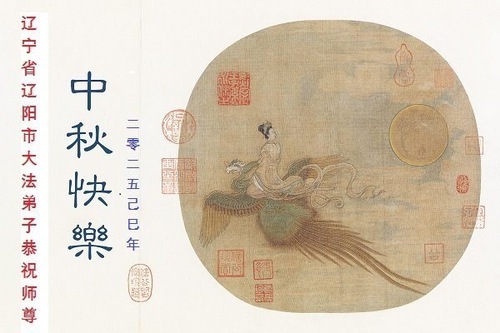 辽宁省辽阳市大法弟子恭祝师尊
中秋快樂
二零二五己巳年